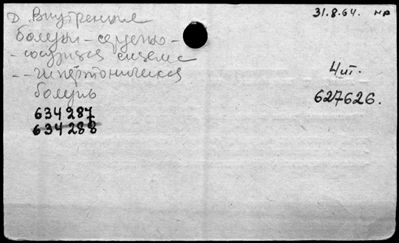 Д. Внутренние
31.8.64. нр
болезни - сердечно -
- сосудистая система
4 ш.
-- гипертоническая
болезнь
627626.
634287
634288